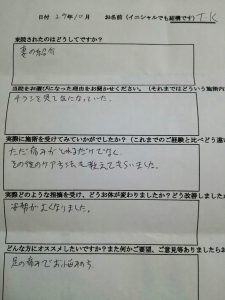 日付 27年10月 お名前（イニシャルでも結構です）T.K
来院されたのはどうしてですか？
妻の紹介
当院をお選びになった理由をお聞かせください。（それまではどういう施術内
チラシを見て気になっていた。
実際に施術を受けてみていかがでしたか？（これまでのご経験と比べどう違い
ただ痛みがとれるだけでなく、
その後のケア方法を教えてもらいました。
実際どのような指摘を受け、どうお体が変わりましたか？どう改善しました
姿勢がよくなりました。
どんな方にオススメしたいですか？また何かご要望、ご意見等ありましたらお
足の痛みでお悩みの方。